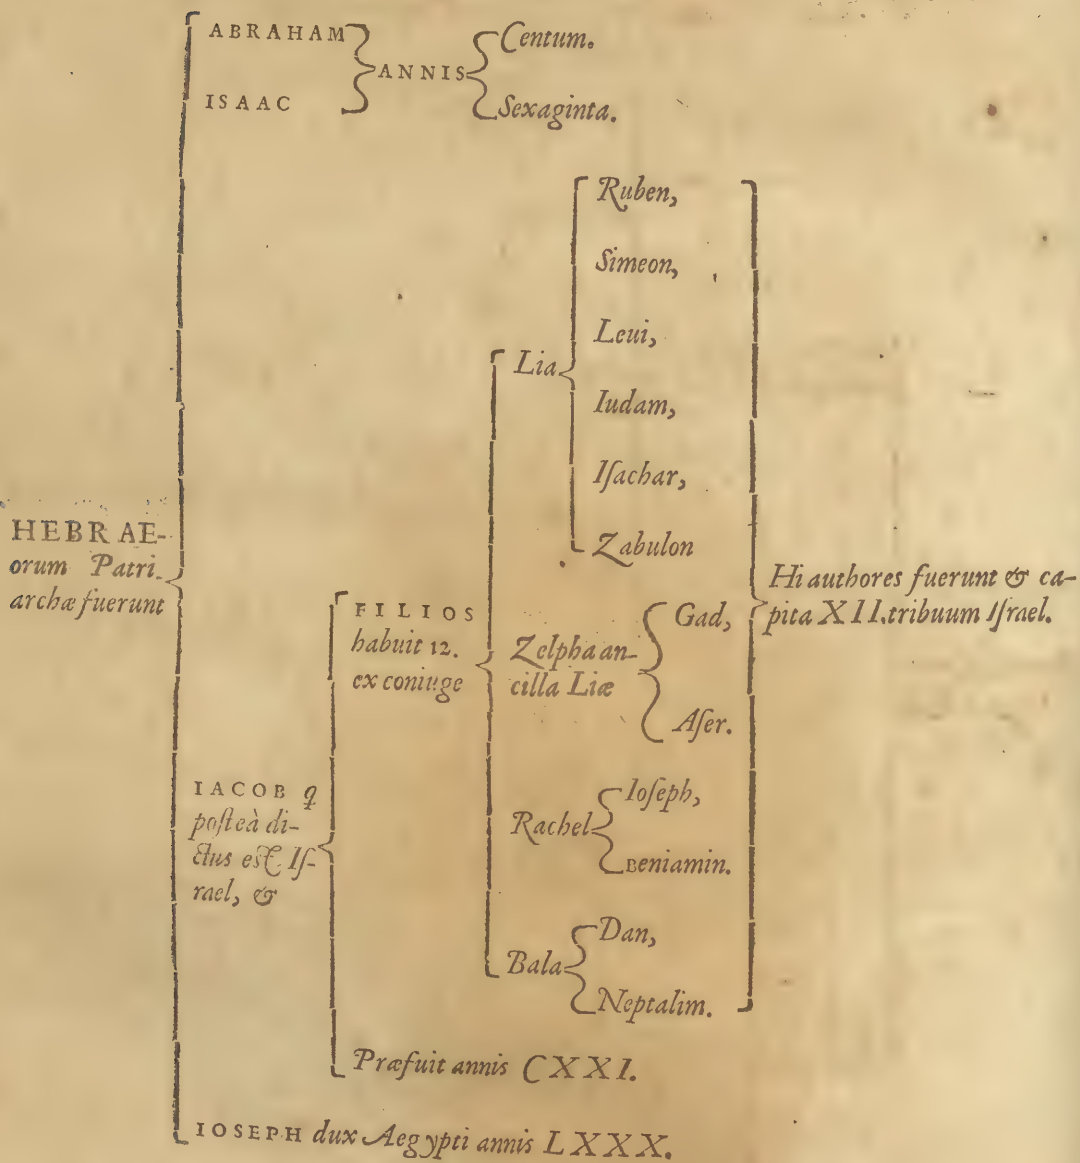 ABRAHAM
ISAAC
ANNIS
Centum.
Sexaginta.
HEBRAE-
orum Patri-
archæ fuerunt
IACOB q
posteà di-
ctus est Iſ-
rael, &
FILIOS
habuit 12.
ex coniuge
Lia
Ruben,
Simeon,
Leui,
Iudam,
Iſachar,
Zabulon
Zelpha an-
cilla Liæ
Gad,
Aſer.
Rachel
Ioſeph,
Beniamin.
Bala
Dan,
Neptalim.
Hi authores fuerunt & ca-
pita XII. tribuum Iſrael.
Præfuit annis CXXI.
IOSEPH dux Aegypti annis LXXX.